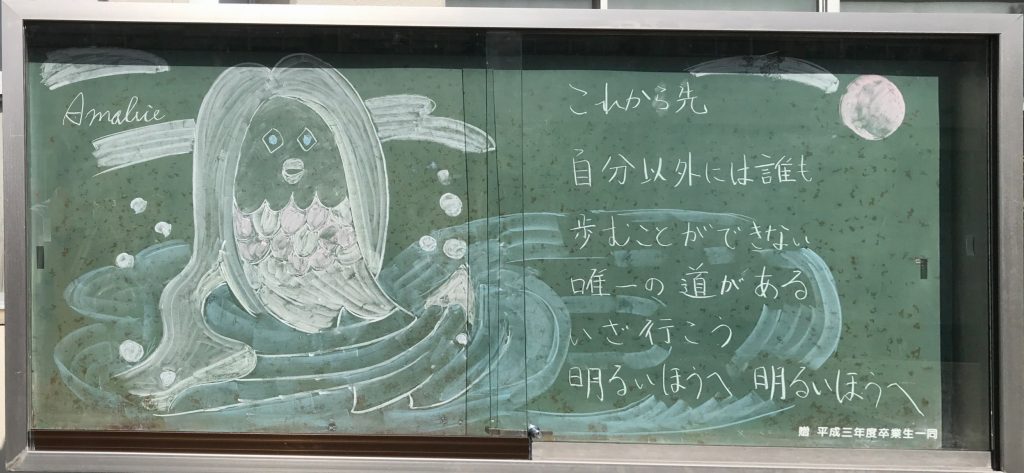 Amabie
これから先
自分以外には誰も
歩むことができない
唯一の道がある
いざ行こう
明るいほうへ 明るいほうへ
贈 平成三年度卒業生一同